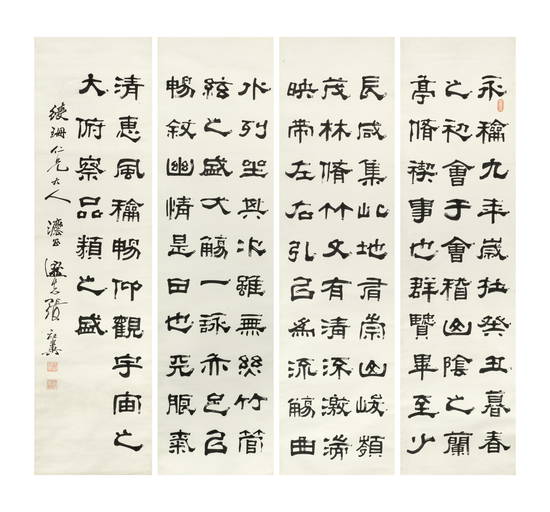 永龢九年歲在癸丑暮春
之初會于會稽山陰之蘭
亭脩禊事也群賢畢至少
長咸集此地有崇山峻領
茂林脩竹又有清流激湍
映帶左右引㠯為流觴曲
水列坐其次雖無絲竹管
絃之盛一觴一詠亦足㠯
暢敘幽情是日也天朗氣
清惠風龢暢仰觀宇宙之
大俯察品類之盛
綬珊仁兄大人 灋正 張